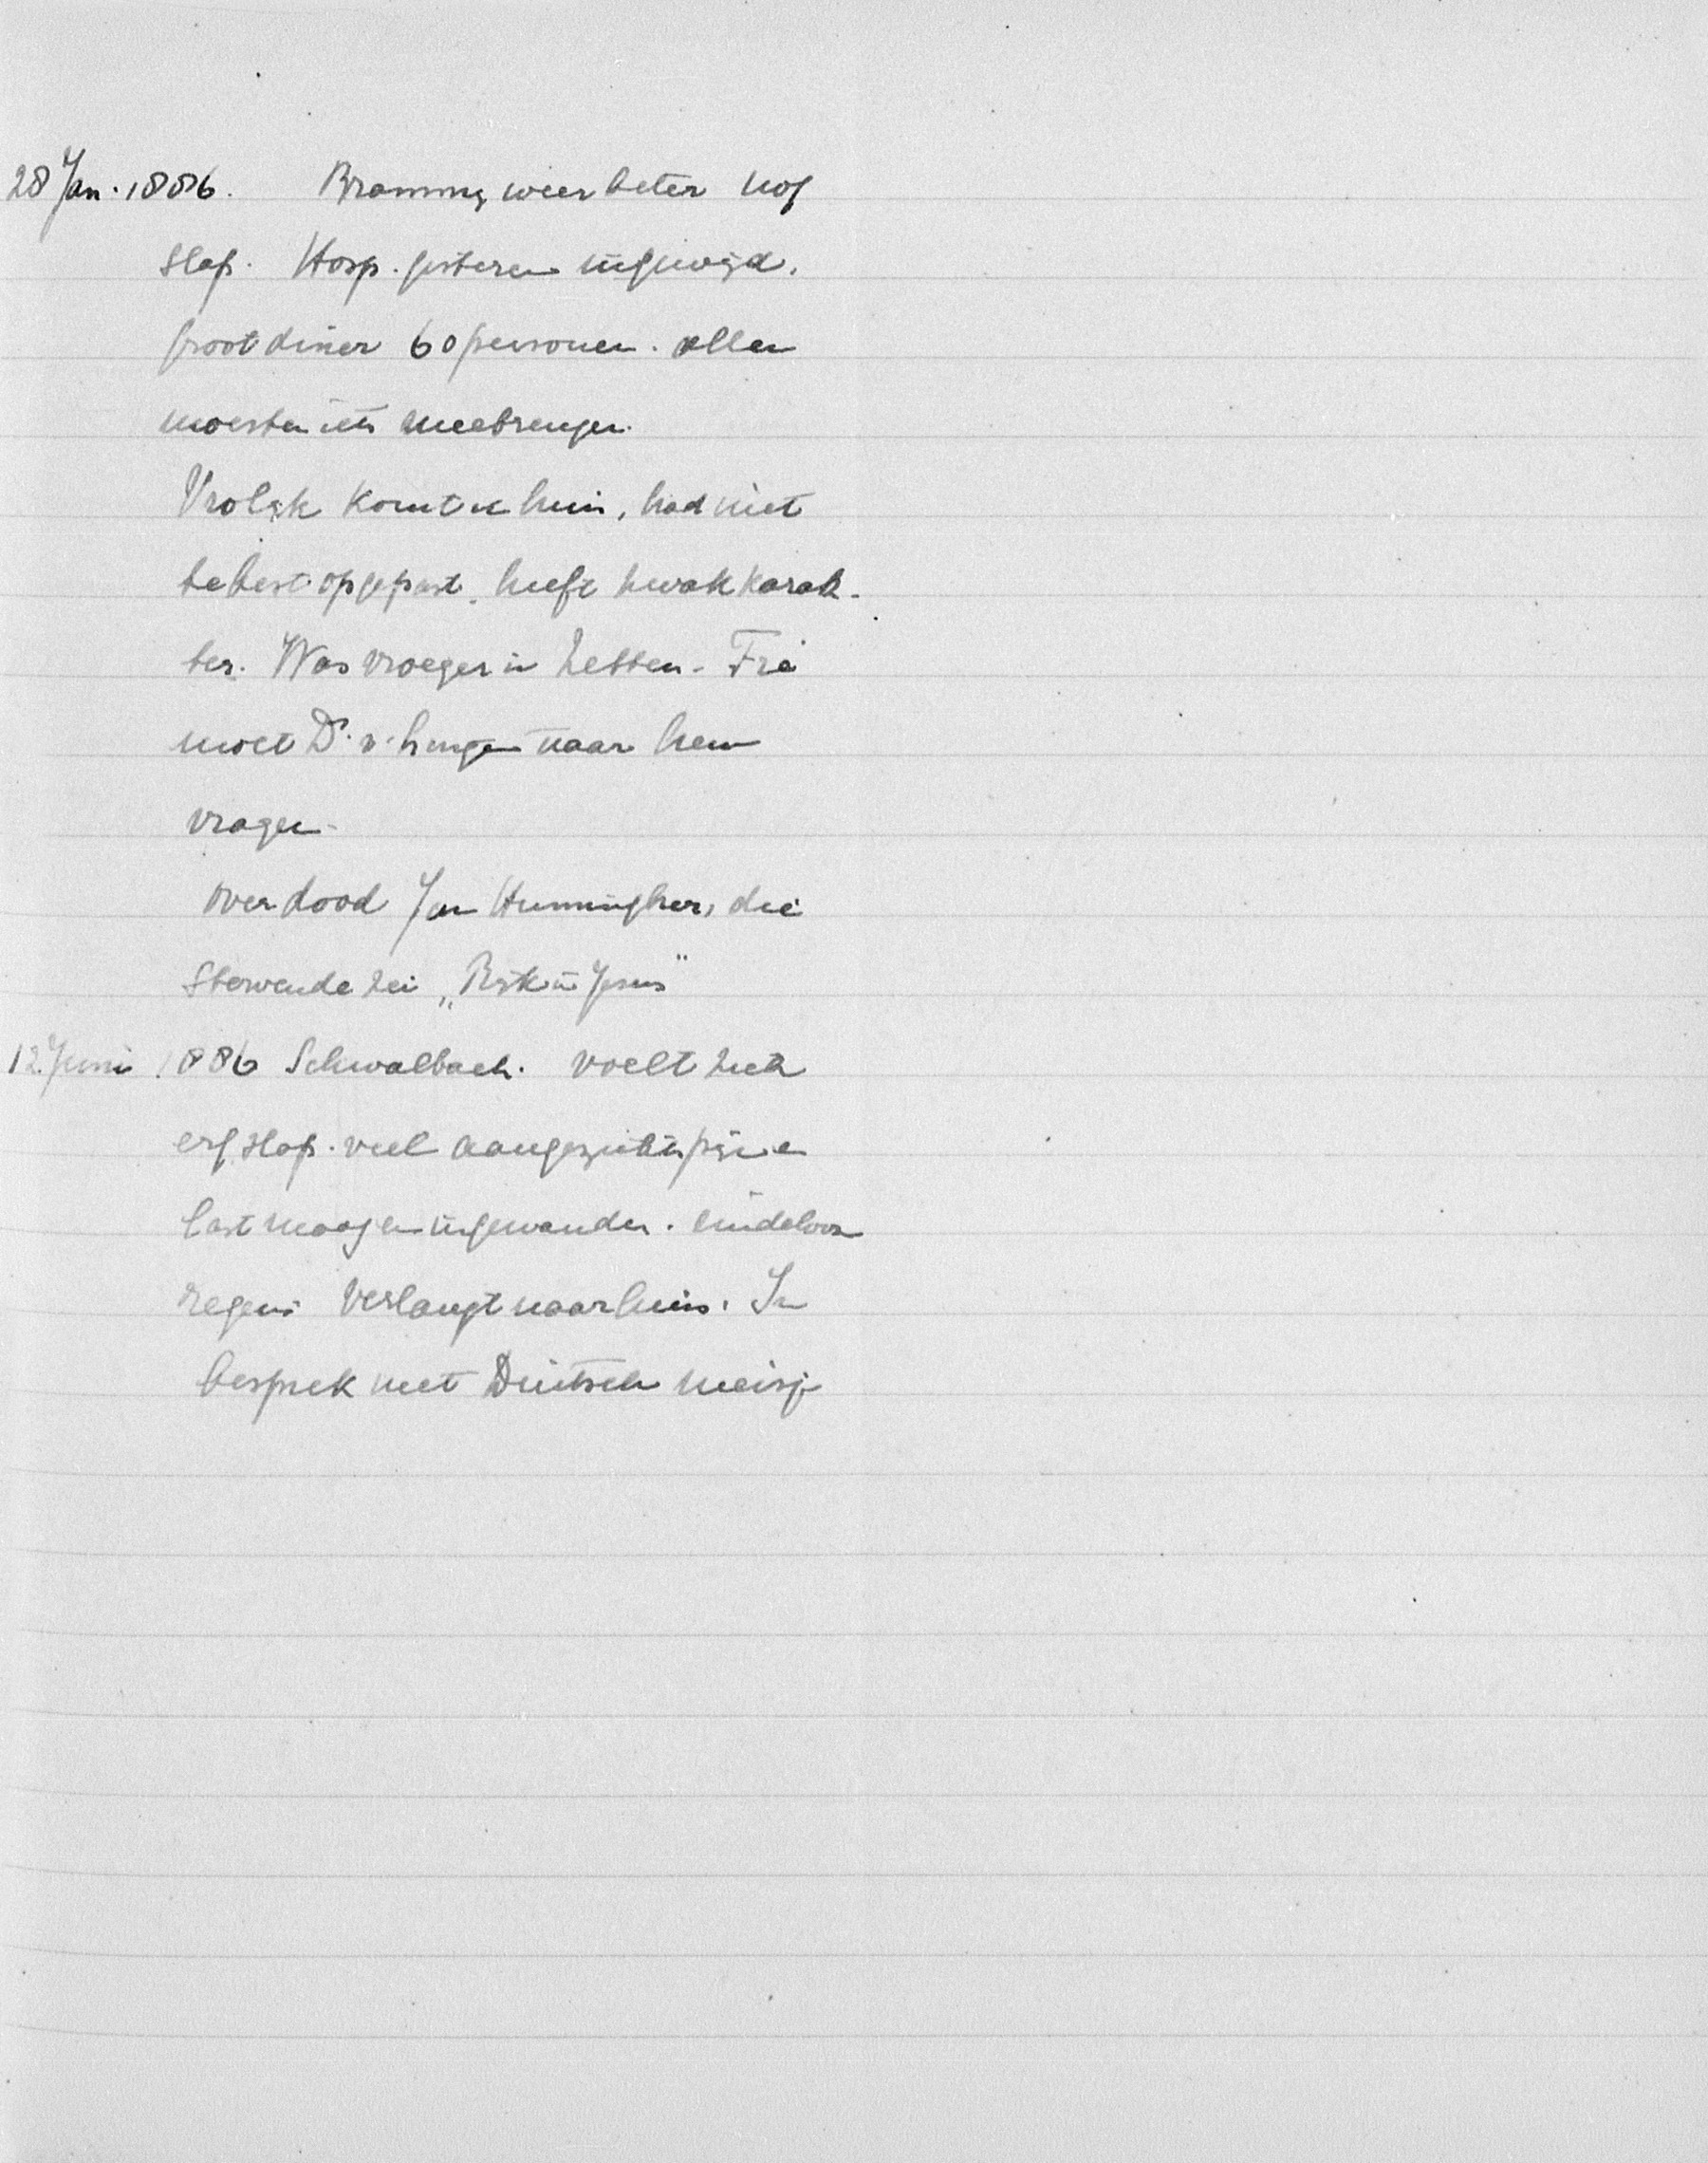 28 Jan. 1886. weer beter nog
slap. Hosp. gisteren ingewijd.
groot diner 60 personen. allen
moesten iets meebrengen.
Vrolijk komt thuis, had niet
te best opgepast. heeft zwak karak-
ter. Was vroeger in Zetten. Fré
moet Ds. v. naar hem
vragen.
over dood Jan Hunningher, die
stervende zei „Rijk in Jesus"
12 Juni 1886 Schwalbach. voelt zich
erg slap. veel aangezichtspijn en
last maag en ingewanden. eindeloos
regen. Verlangt naar huis. In
gesprek met Duitsch meisje